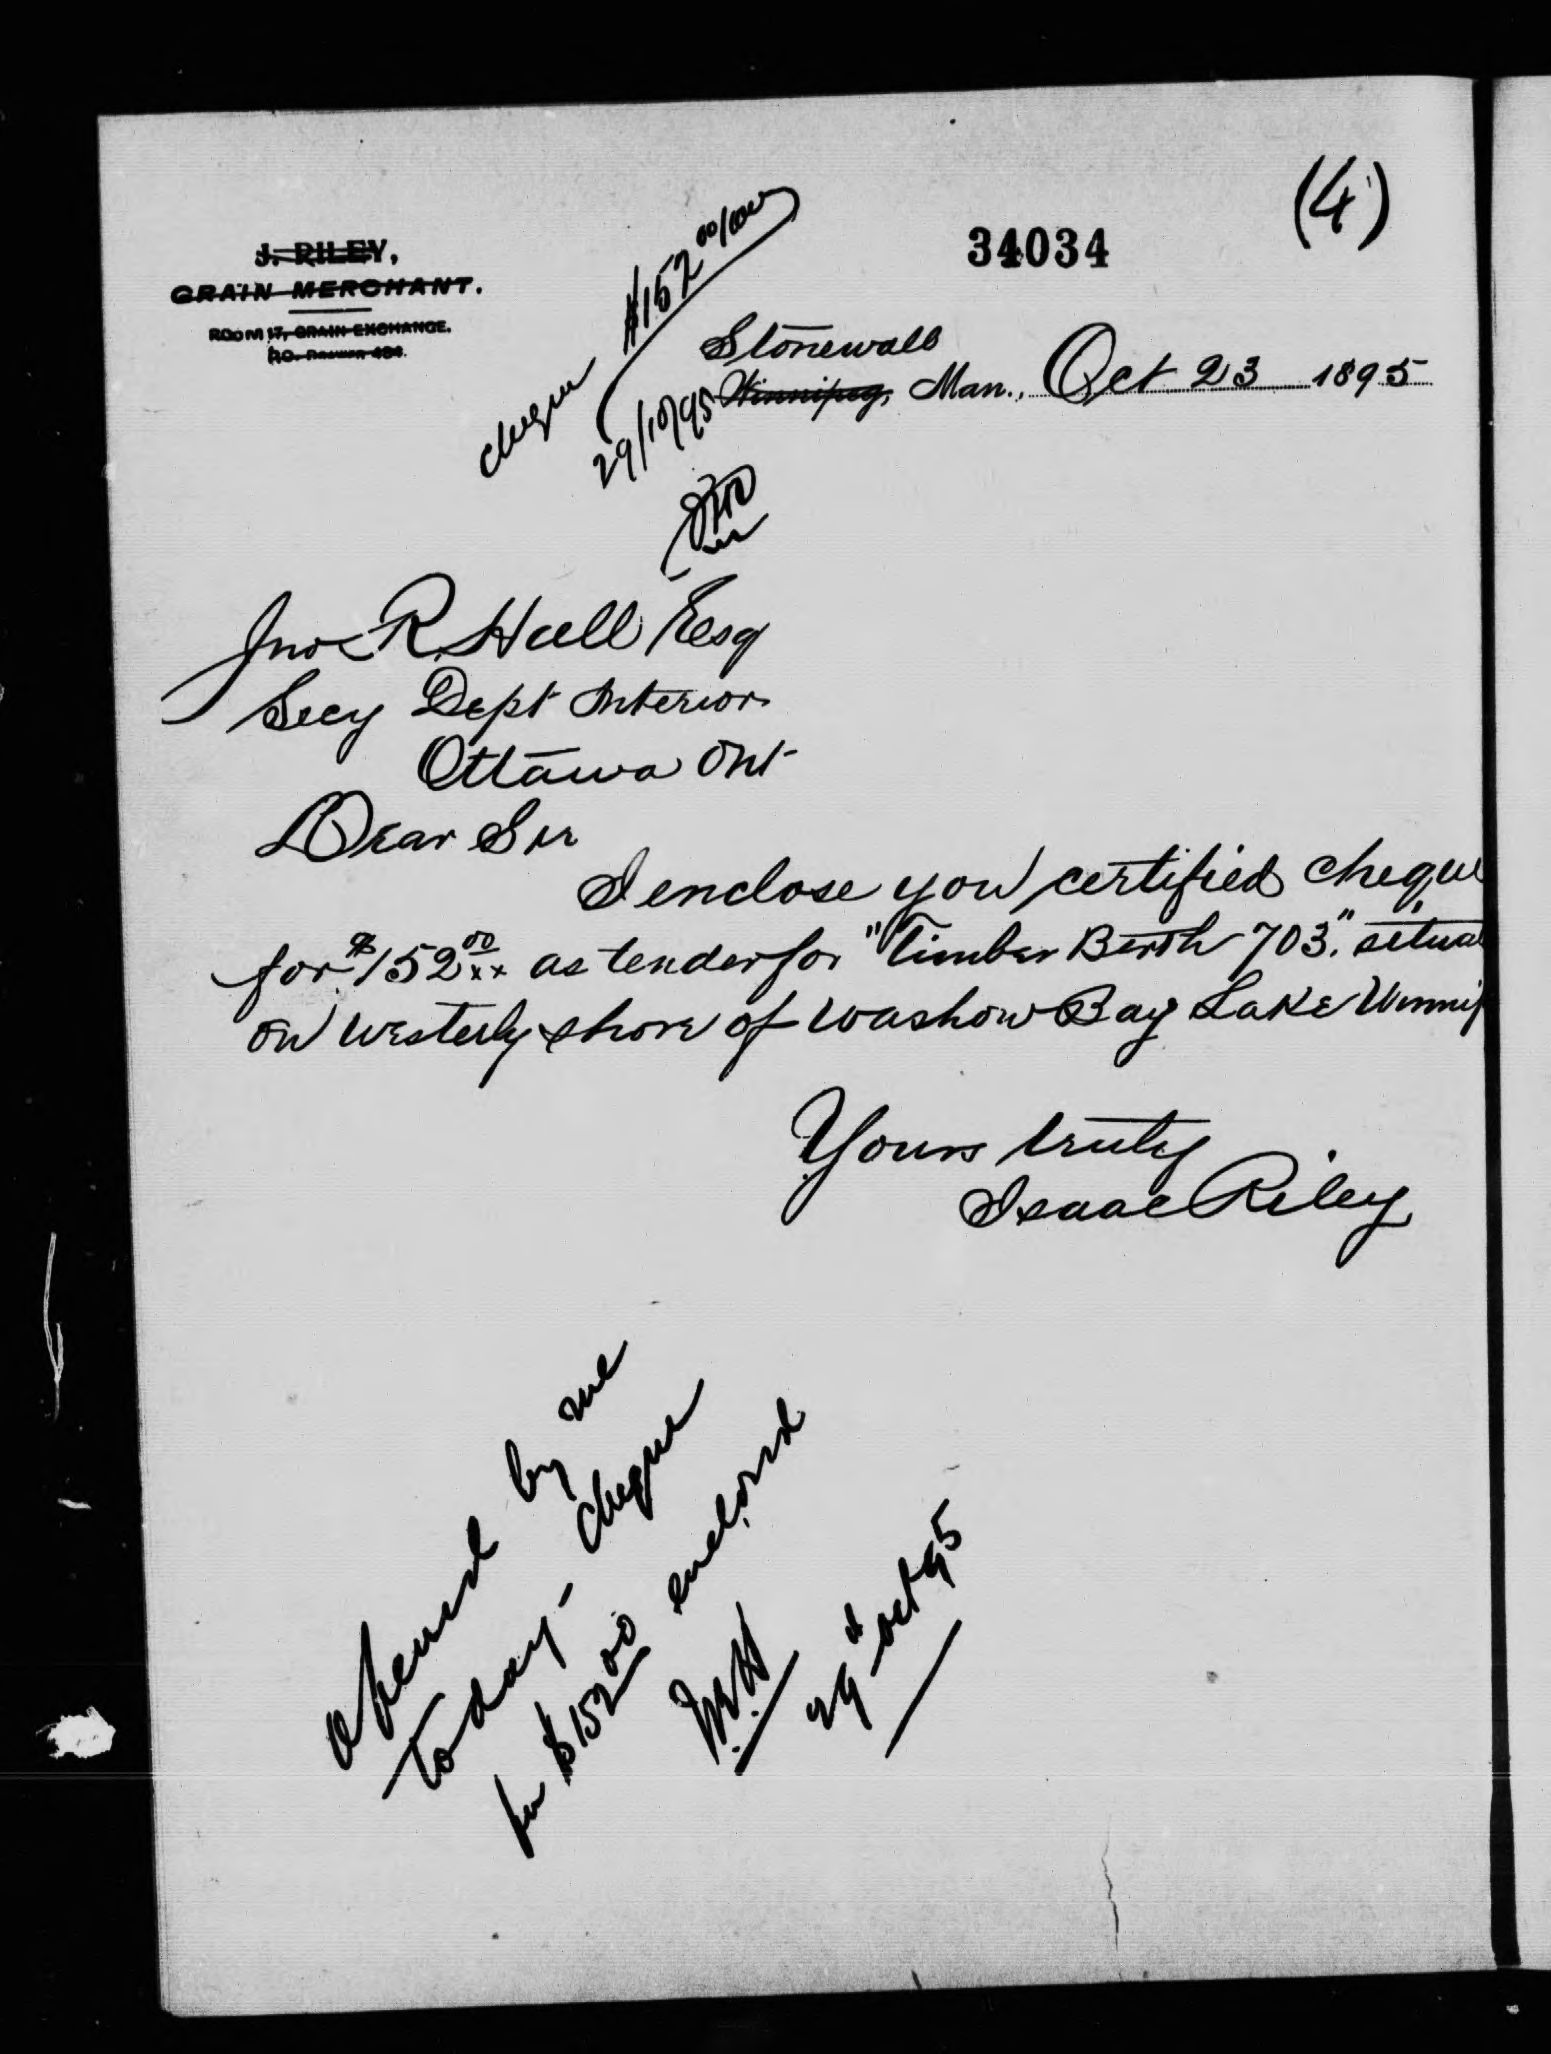 (4)
34034
J. RILEY,
GRAIN MERCHANT.
ROOM 17, GRAIN EXCHANGE.
P.O. 
cheque $152 00/100
29/10/95
Stonewall
Winnipeg, Man., Oct 23 1895
Jno R. Hall Esq
Secy Dept Interior
Ottawa Ont
Dear Sir
I enclose you certified cheque
for $152 00/xx as tender for "Timber Berth 703." situa
on westerly shore of Washow Bay Lake Winnip
Yours truly
Isaac Riley
opened by me
today - cheque
for $152 00 enclosed
29 Oct 95